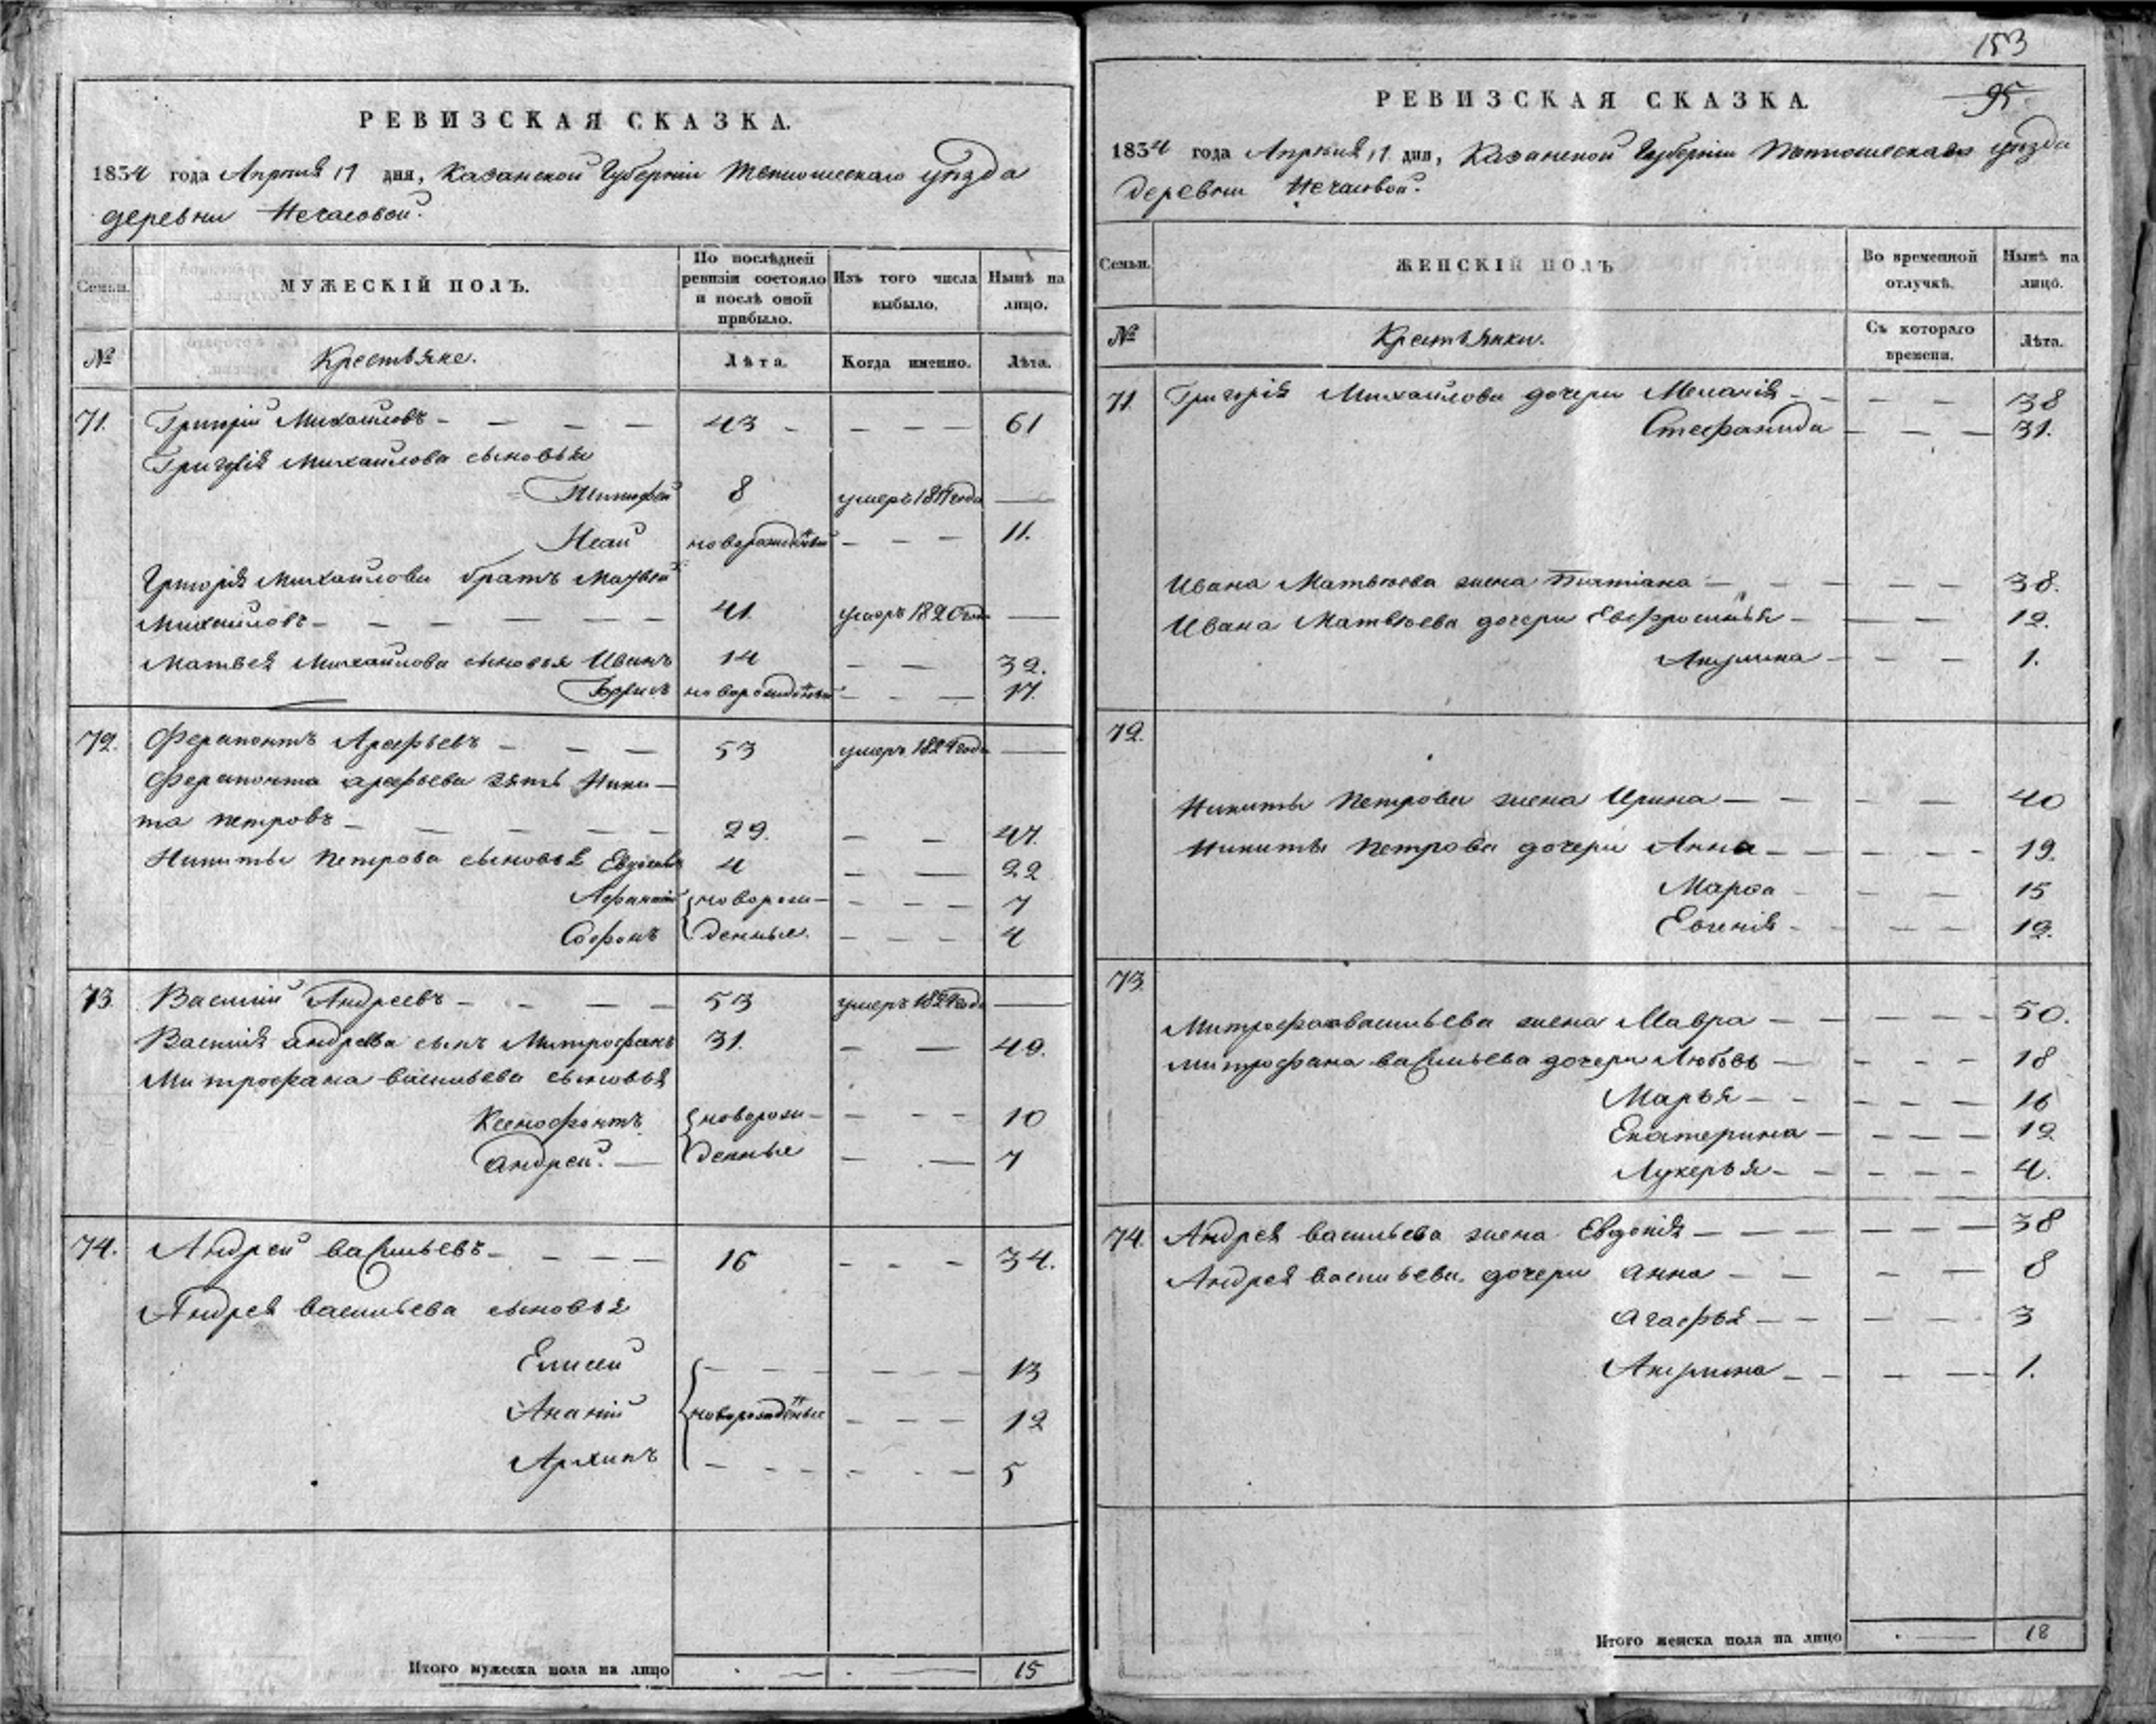 РЕВИЗСКАЯ СКАЗКА.
1834 года Апреля 17 дня, Казанской Губерніи Тетюшескаго уѣзда
деревни Нечасовой.
Семьи.
МУЖЕСКІЙ ПОЛЪ.
По послѣдней
ревизіи состояло
и послѣ оной
прибыло.
Изъ того числа
выбыло.
Нынѣ на
лицо.
№
Крестьяне.
Лѣта.
Когда именно.
Лѣта.
71. Григорій Михайловъ — — — — 43 — — — — 61
Григорія Михайлова сыновья
Тимофей 8 умеръ года —
Исай новорожденный — — — 11.
Григорія Михайлова братъ Матвей
Михайловъ — — — — — — 41 умеръ 1820 года —
Матвея Михайлова сыновья Иванъ 14 — — 32.
Борисъ новорожденный — — — 17.
72. Ферапонтъ Арефьевъ — — — 53 умеръ года —
Ферапонта арефьева зять Ники—
та петровъ — — — — — — 29. — — 47.
Никиты Петрова сыновья 4 — — 22
новорож— — — — 7
Софонъ денные. — — — 4
73. Василий Андреевъ — — — — 53 умеръ года —
Василія андреева сынъ Митрофанъ 31. — — 49.
Митрофана васильева сыновья
Ксенофонтъ новорож— — — — 10
Андрей. — денные — — 7
74. Андрей васильевъ — — — — 16 — — — 34.
Андрея васильева сыновья
Елисей — — — — — — 13
Ананій новорожденные — — — 12
Архипъ — — — — — — 5
Итого мужеска пола на лицо . — . — 15
153
95
РЕВИЗСКАЯ СКАЗКА.
1834 года Апреля 17 дня, Казанской Губерніи Тетюшескаго уѣзда
деревни Нечасовой.
Семьи.
ЖЕНСКІЙ ПОЛЪ
Во временной
отлучкѣ.
Нынѣ на
лицо.
№
Крестьянки.
Съ котораго
времени.
Лѣта.
71. Григорія Михайлова дочери Меланія — — — — 38
Стефанида — — — 31.
Ивана Матвѣева жена — — — — — 38.
Ивана Матвѣева дочери Евфросинья — — — 12.
Акулина — — — 1.
72.
Никиты Петрова жена Ирина — — — — 40
Никиты Петрова дочери Анна — — — — — 19.
Марфа — — — 15
Евгенія — — — — 12.
73.
Митрофана васильева жена Мавра — — — — — 50.
Митрофана васильева дочери Любовь — — — — 18
Марья — — — — — 16
Екатерина — — — — 12
Лукерья — — — — — 4.
74. Андрея васильева жена Евдокія — — — — — — 38
Андрея васильева дочери анна — — — — 8
агафья — — — — — 3
Акулина — — — — 1.
Итого женска пола на лицо . — 18